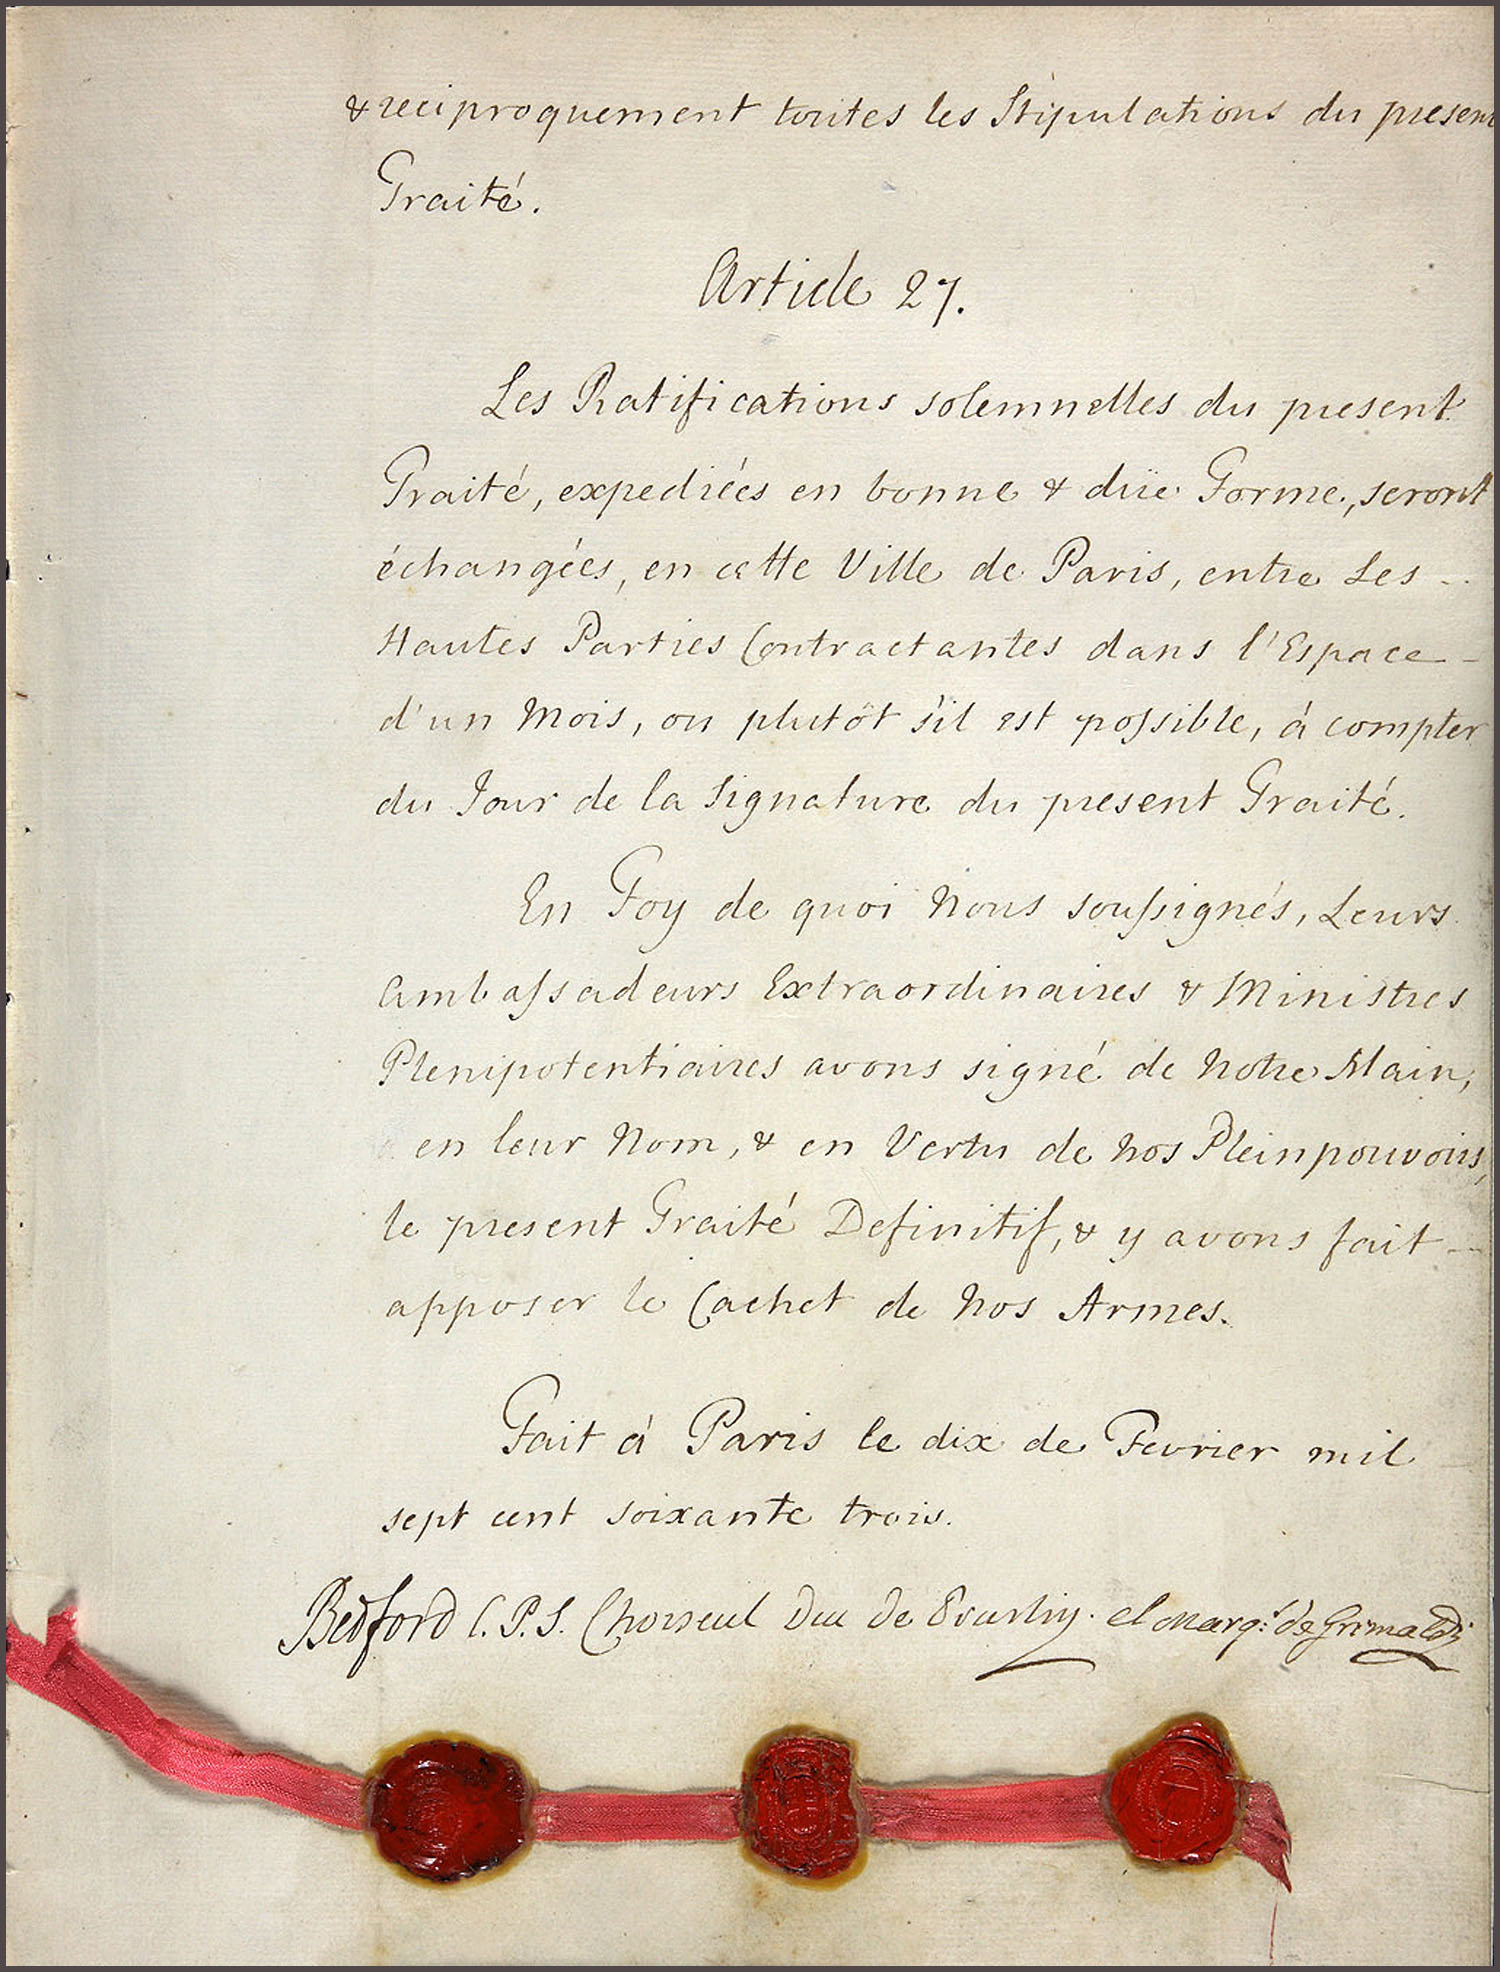 & reciproquement toutes les Stipulations du present
Traité.
Article 27.
Les Ratifications solemnelles du present
Traité, expediées en bonne & düe Forme, seront
échangées, en cette Ville de Paris, entre Les
Hautes Parties Contractantes dans l'Espace
d'un Mois, ou plutôt s'il est possible, à compter
du Jour de la Signature du present Traité.
En Foy de quoi Nous soussignés, Leurs
Ambassadeurs Extraordinaires & Ministres
Plenipotentiaires avons signé de Notre Main,
en leur Nom, & en Vertu de nos Pleinpouvoirs,
le present Traité Definitif, & y avons fait
apposer le Cachet de Nos Armes.
Fait à Paris le dix de Fevrier mil
sept cent soixante trois.
Bedford C. P. S. Choiseul Duc de Praslin. el Marq.s de Grimaldi